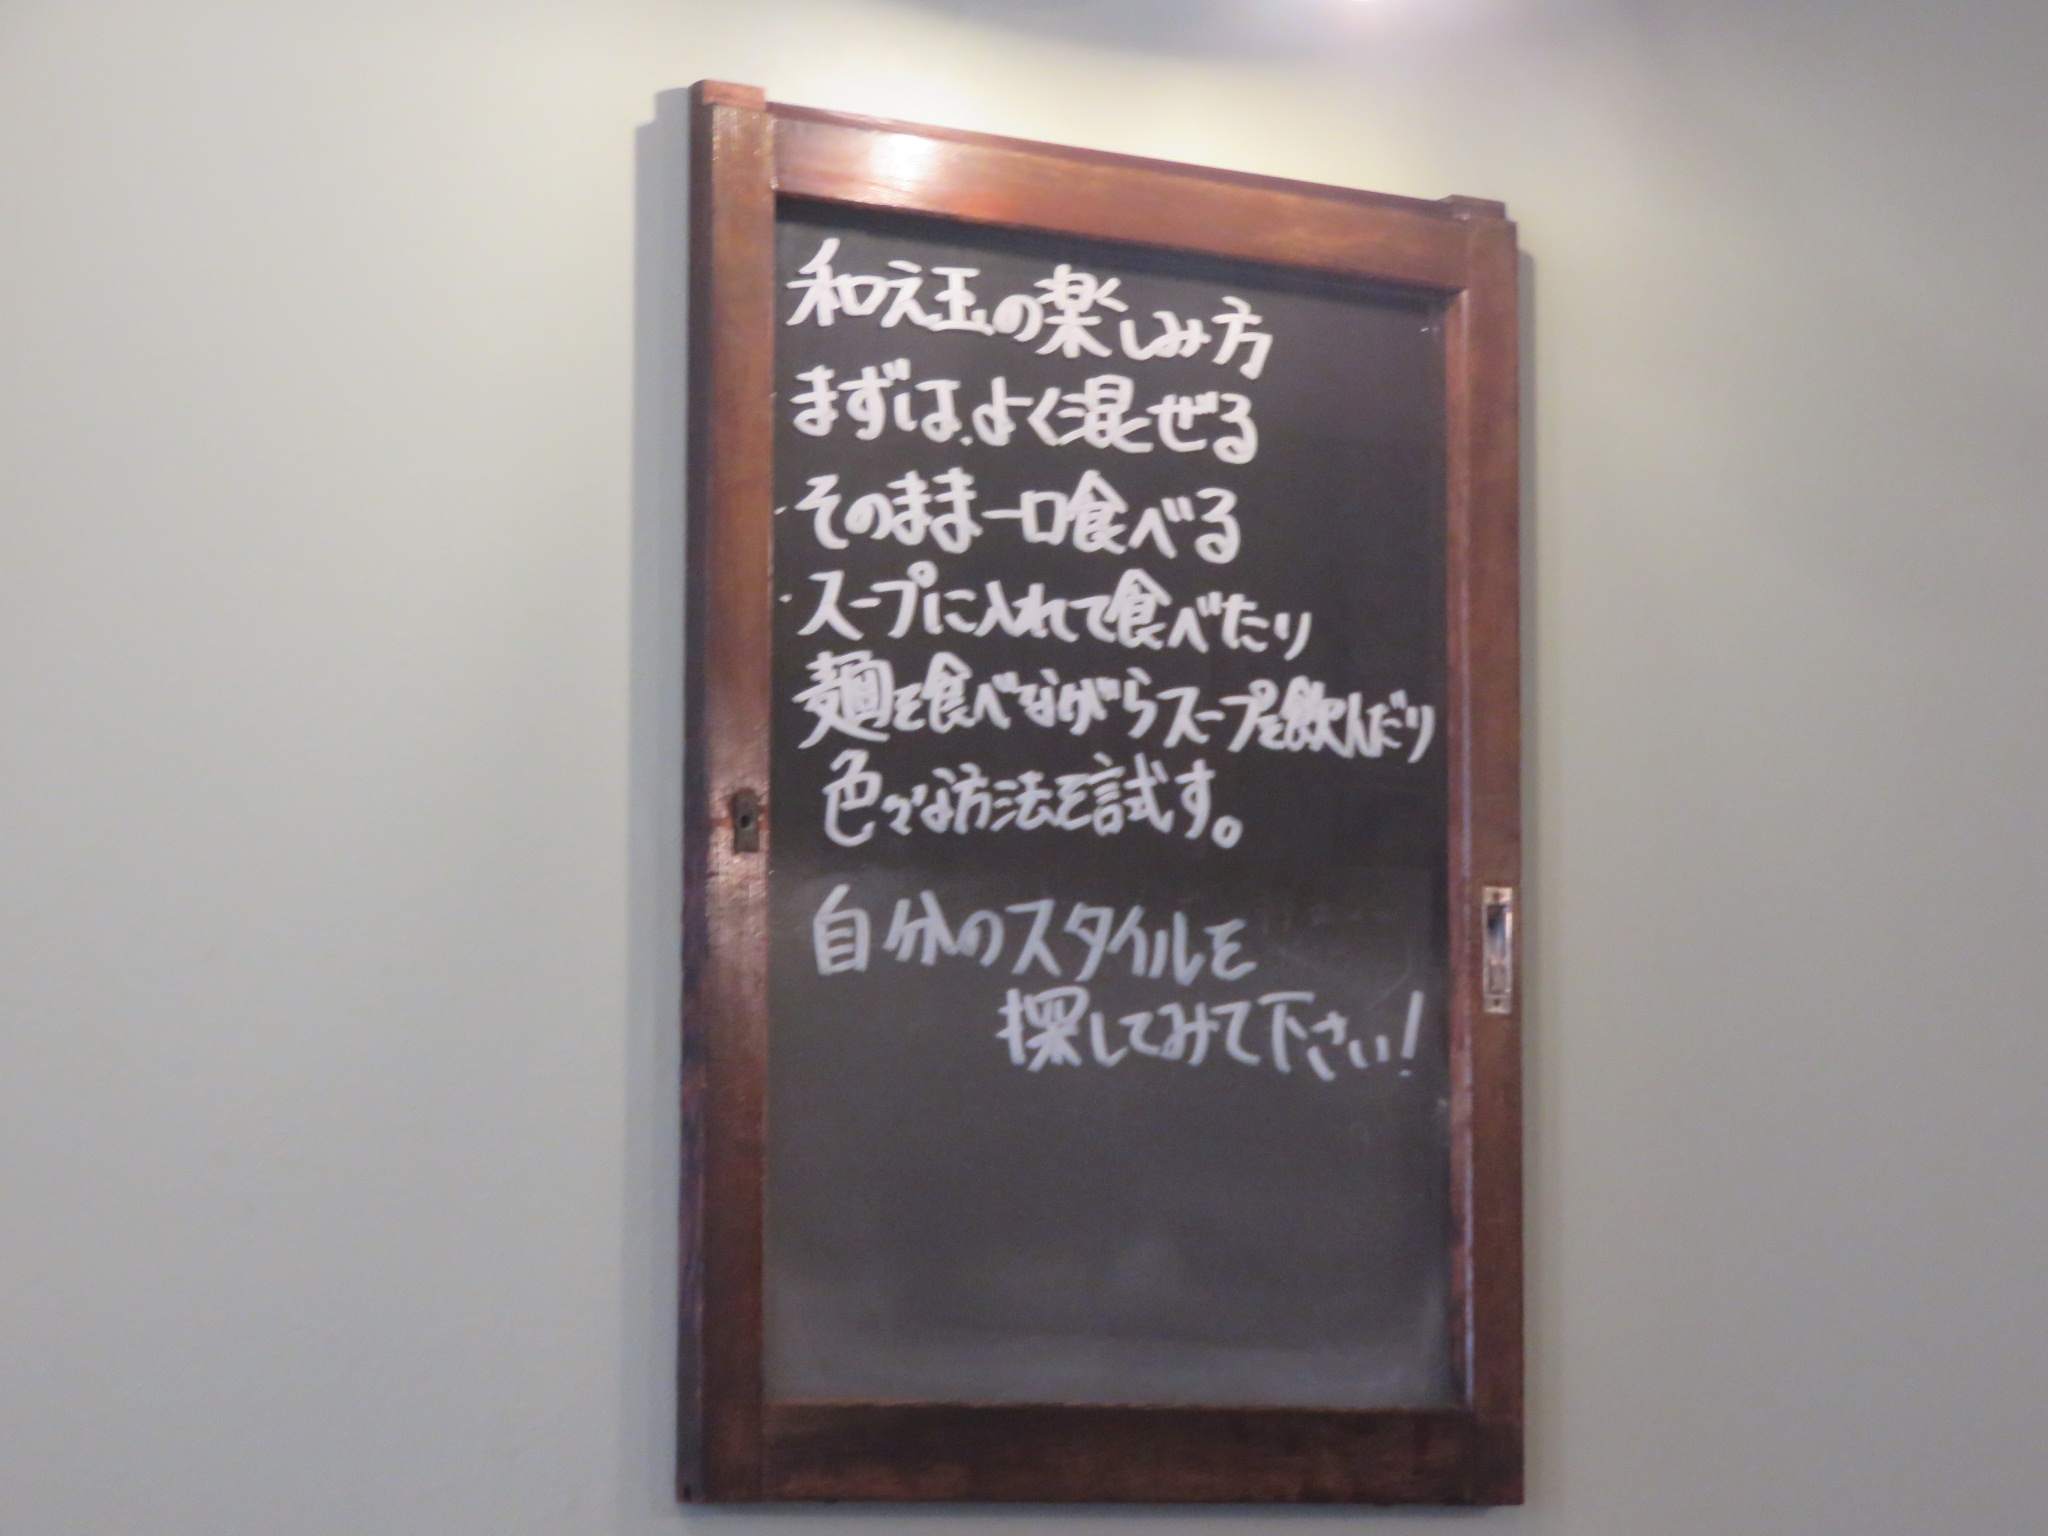 和え玉の楽しみ方
まずは、よく混ぜる
そのまま一口食べる
スープに入れて食べたり
麺を食べながらスープを飲んだり
色々な方法を試す。
自分のスタイルを
探してみて下さい!